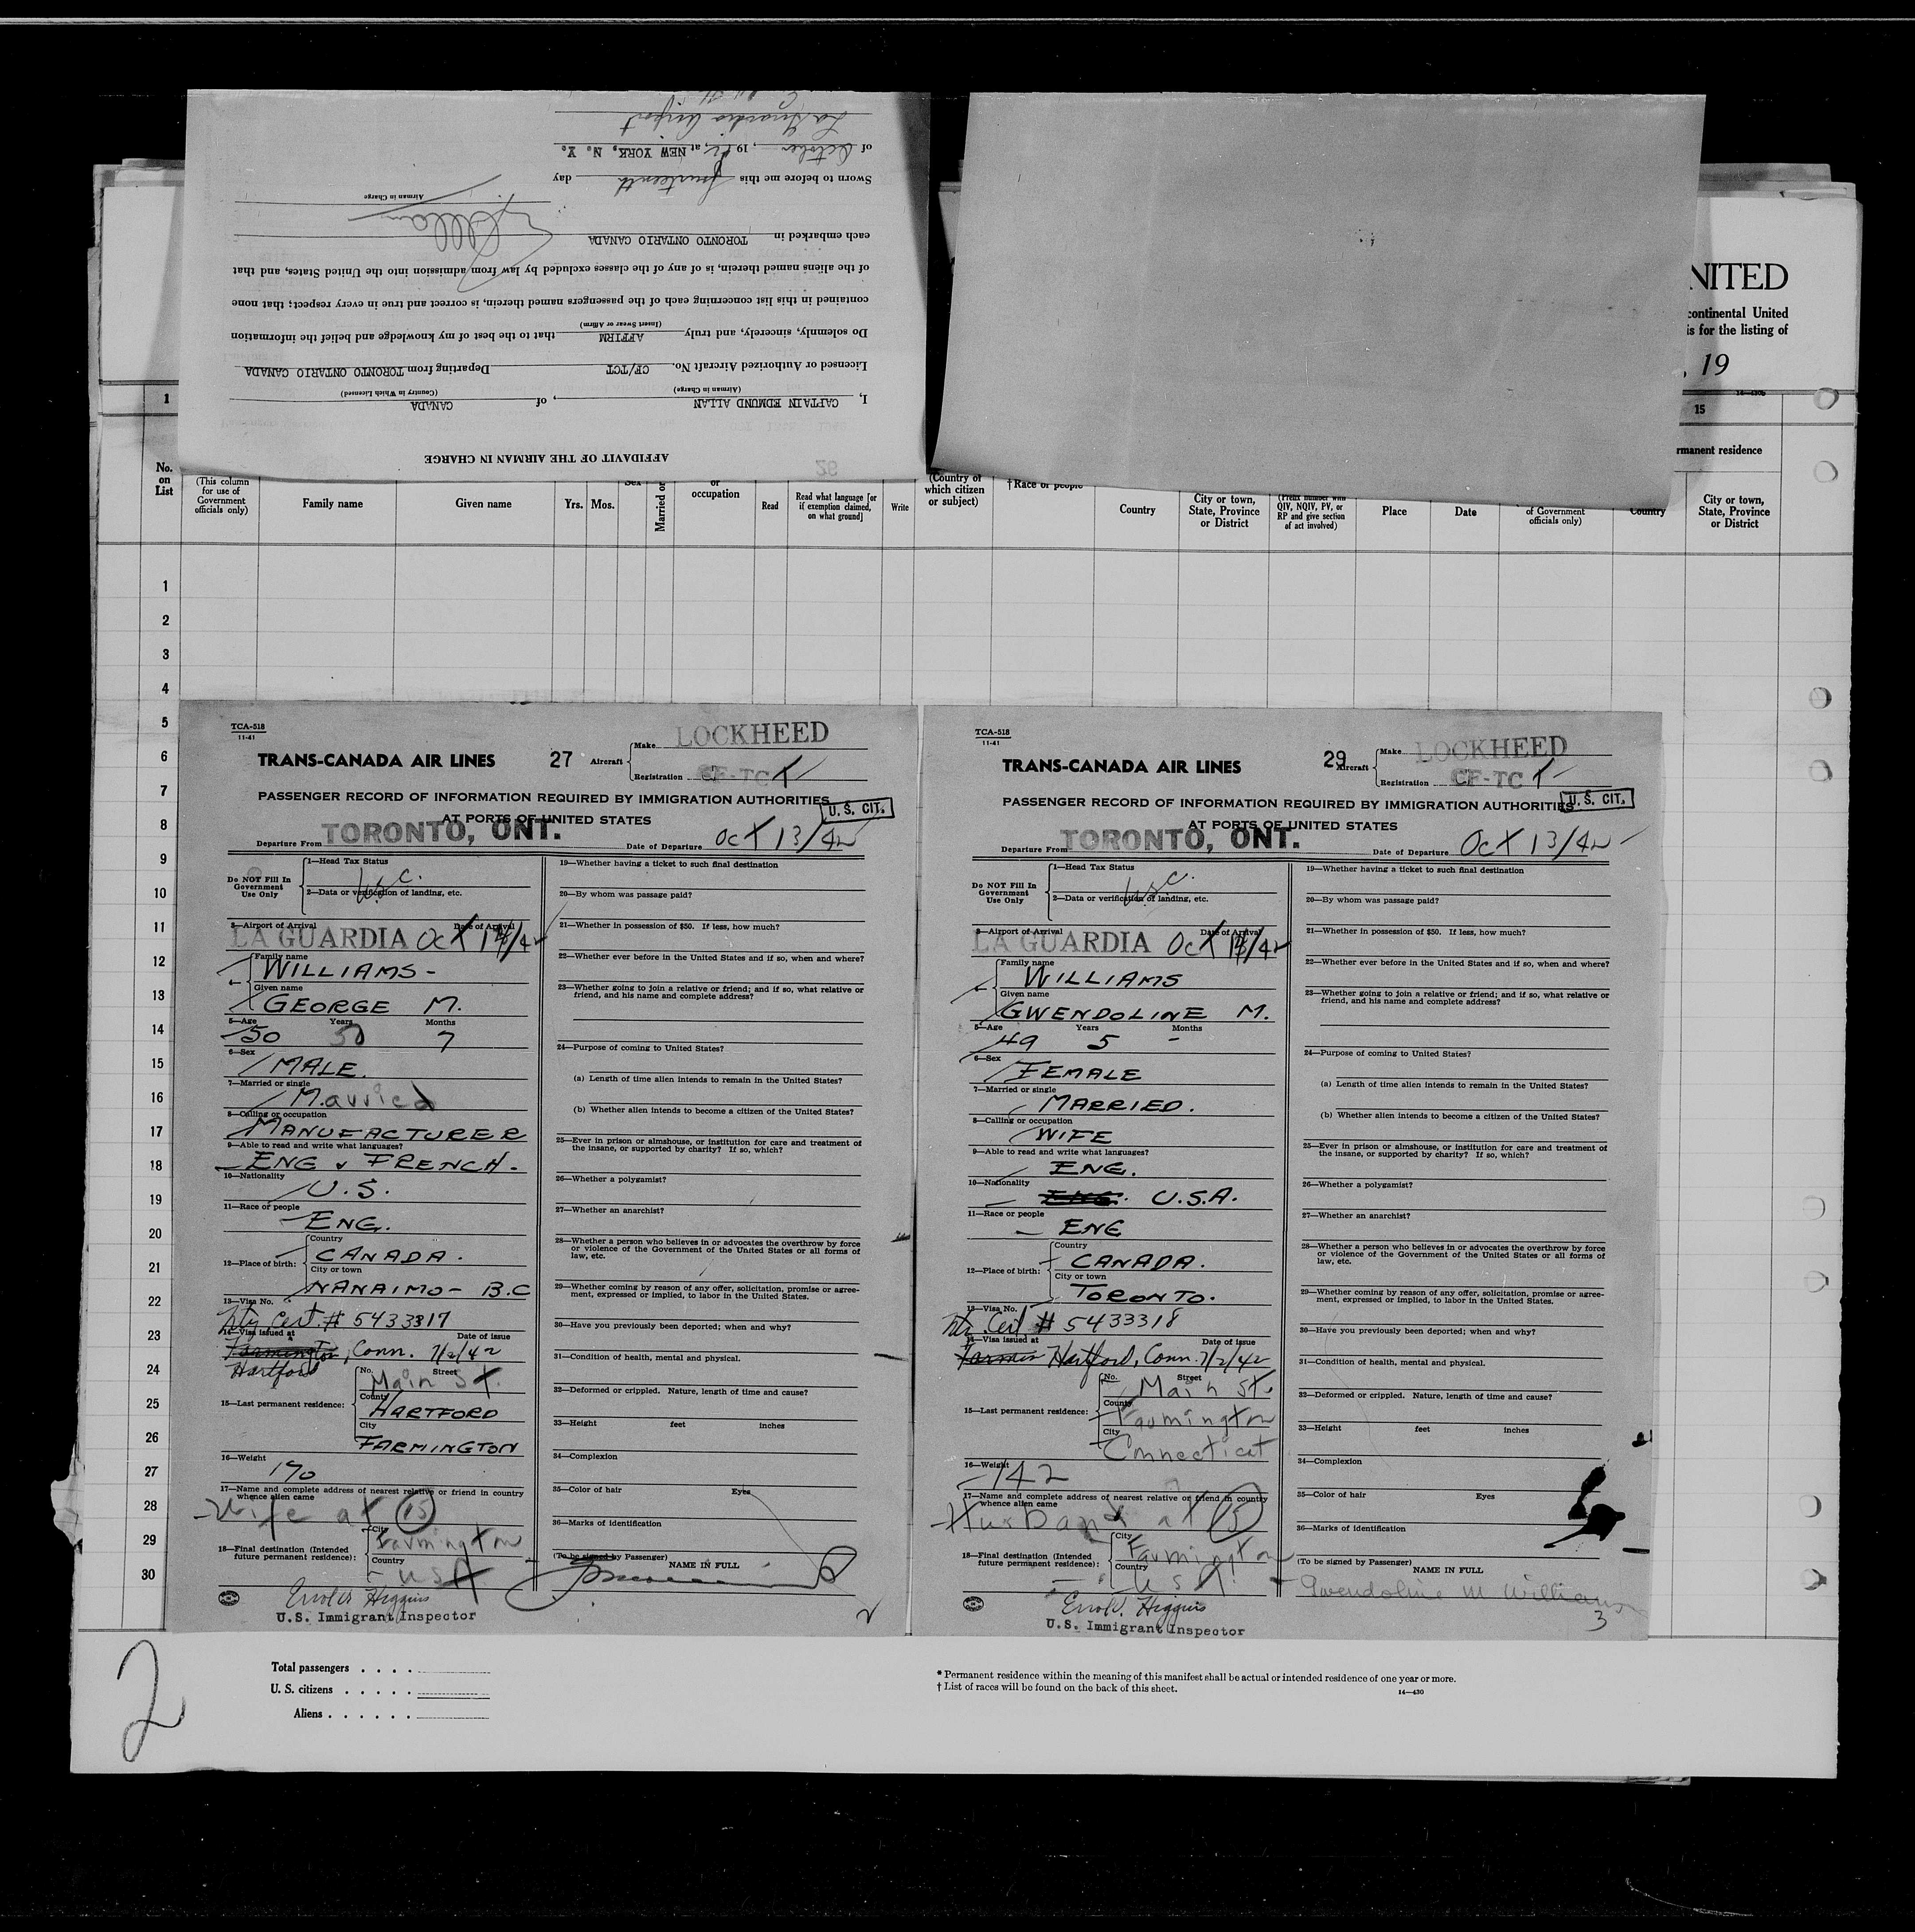 AFFIDAVIT OF THE AIRMAN IN CHARGE
I, CAPTAIN EDMUND ALLAN, of CANADA
(Airman in Charge) (Country in Which Licensed)
Licensed or Authorized Aircraft No. CF/TCT Departing from TORONTO ONTARIO CANADA
Do solemnly, sincerely, and truly AFFIRM that to the best of my knowledge and belief the information
(Insert Swear or Affirm)
contained in this list concerning each of the passengers named therein, is correct and true in every respect; that none
of the aliens named therein, is of any of the classes excluded by law from admission into the United States, and that
each embarked in TORONTO ONTARIO CANADA
Airman in Charge
Sworn to before me this fourteenth day
of October, 1942, at NEW YORK, N. Y.
La Guardia Airport
26
NITED
continental United
is for the listing of
, 19
1
15
rmanent residence
No.
on
List
(This column
for use of
Government
officials only)
Family name
Given name
Yrs. Mos.
Sex
Married or
or
occupation
Read
Read what language [or
if exemption claimed,
on what ground]
Write
(Country of
which citizen
or subject)
†Race or people
Country
City or town,
State, Province
or District
(Prefix number with
QIV, NQIV, PV, or
RP and give section
of act involved)
Place
Date
of Government
officials only)
Country
City or town,
State, Province
or District
1
2
3
4
5
6
7
8
9
10
11
12
13
14
15
16
17
18
19
20
21
22
23
24
25
26
27
28
29
30
TCA-518
11-41
TRANS-CANADA AIR LINES 27 Aircraft
Make LOCKHEED
Registration CF-TC T
PASSENGER RECORD OF INFORMATION REQUIRED BY IMMIGRATION AUTHORITIES
AT PORTS OF UNITED STATES
U. S. CIT.
Departure From TORONTO, ONT. Date of Departure Oct 13/42
Do NOT Fill In
Government
Use Only
1—Head Tax Status
USC.
2—Data or verification of landing, etc.
3—Airport of Arrival Date of Arrival
LA GUARDIA Oct 14/42
4— Family name
WILLIAMS -
Given name
GEORGE M.
5—Age Years Months
50 50 7
6—Sex
MALE.
7—Married or single
Married
8—Calling or occupation
MANUFACTURER
9—Able to read and write what languages?
ENG & FRENCH.
10—Nationality
U.S.
11—Race or people
ENG.
12—Place of birth: Country
CANADA.
City or town
NANAIMO - B.C
13—Visa No.
Ntz. Cert. # 5433317
14—Visa issued at Date of issue
Farmington, Conn. 7/2/42
Hartford
15—Last permanent residence: No. Street
Main St.
County
HARTFORD
City
FARMINGTON
16—Weight
170
17—Name and complete address of nearest relative or friend in country
whence alien came
Wife at 15
18—Final destination (Intended
future permanent residence):
City
Farmington
Country
USA
Errol R. Higgins
U.S. Immigrant Inspector
19—Whether having a ticket to such final destination
20—By whom was passage paid?
21—Whether in possession of $50. If less, how much?
22—Whether ever before in the United States and if so, when and where?
23—Whether going to join a relative or friend; and if so, what relative or
friend, and his name and complete address?
24—Purpose of coming to United States?
(a) Length of time alien intends to remain in the United States?
(b) Whether alien intends to become a citizen of the United States?
25—Ever in prison or almshouse, or institution for care and treatment of
the insane, or supported by charity? If so, which?
26—Whether a polygamist?
27—Whether an anarchist?
28—Whether a person who believes in or advocates the overthrow by force
or violence of the Government of the United States or all forms of
law, etc.
29—Whether coming by reason of any offer, solicitation, promise or agree-
ment, expressed or implied, to labor in the United States.
30—Have you previously been deported; when and why?
31—Condition of health, mental and physical.
32—Deformed or crippled. Nature, length of time and cause?
33—Height feet inches
34—Complexion
35—Color of hair Eyes
36—Marks of identification
(To be signed by Passenger) NAME IN FULL
2
TCA-518
11-41
TRANS-CANADA AIR LINES 29 Aircraft
Make LOCKHEED
Registration CF-TC T
PASSENGER RECORD OF INFORMATION REQUIRED BY IMMIGRATION AUTHORITIES
AT PORTS OF UNITED STATES
U. S. CIT.
Departure From TORONTO, ONT. Date of Departure Oct 13/42
Do NOT Fill In
Government
Use Only
1—Head Tax Status
USC.
2—Data or verification of landing, etc.
3—Airport of Arrival Date of Arrival
LA GUARDIA Oct 14/42
Family name
WILLIAMS
Given name
GWENDOLINE M.
5—Age Years Months
49 5 -
6—Sex
FEMALE
7—Married or single
MARRIED.
8—Calling or occupation
WIFE
9—Able to read and write what languages?
ENG.
10—Nationality
ENG. U.S.A.
11—Race or people
ENG
12—Place of birth: Country
CANADA.
City or town
TORONTO.
13—Visa No.
Ntz. Cert # 5433318
14—Visa issued at Date of issue
Hartford, Conn. 7/2/42
15—Last permanent residence: No. Street
Main St.
County
Farmington
City
Connecticut
16—Weight
142
17—Name and complete address of nearest relative or friend in country
whence alien came
Husband at 15
18—Final destination (Intended
future permanent residence):
City
Farmington
Country
USA
Errol R. Higgins
U.S. Immigrant Inspector
19—Whether having a ticket to such final destination
20—By whom was passage paid?
21—Whether in possession of $50. If less, how much?
22—Whether ever before in the United States and if so, when and where?
23—Whether going to join a relative or friend; and if so, what relative or
friend, and his name and complete address?
24—Purpose of coming to United States?
(a) Length of time alien intends to remain in the United States?
(b) Whether alien intends to become a citizen of the United States?
25—Ever in prison or almshouse, or institution for care and treatment of
the insane, or supported by charity? If so, which?
26—Whether a polygamist?
27—Whether an anarchist?
28—Whether a person who believes in or advocates the overthrow by force
or violence of the Government of the United States or all forms of
law, etc.
29—Whether coming by reason of any offer, solicitation, promise or agree-
ment, expressed or implied, to labor in the United States.
30—Have you previously been deported; when and why?
31—Condition of health, mental and physical.
32—Deformed or crippled. Nature, length of time and cause?
33—Height feet inches
34—Complexion
35—Color of hair Eyes
36—Marks of identification
(To be signed by Passenger) NAME IN FULL
Gwendoline M Williams
3
2
Total passengers . . . .
U. S. citizens . . . . .
Aliens . . . . . .
* Permanent residence within the meaning of this manifest shall be actual or intended residence of one year or more.
† List of races will be found on the back of this sheet.
14—430